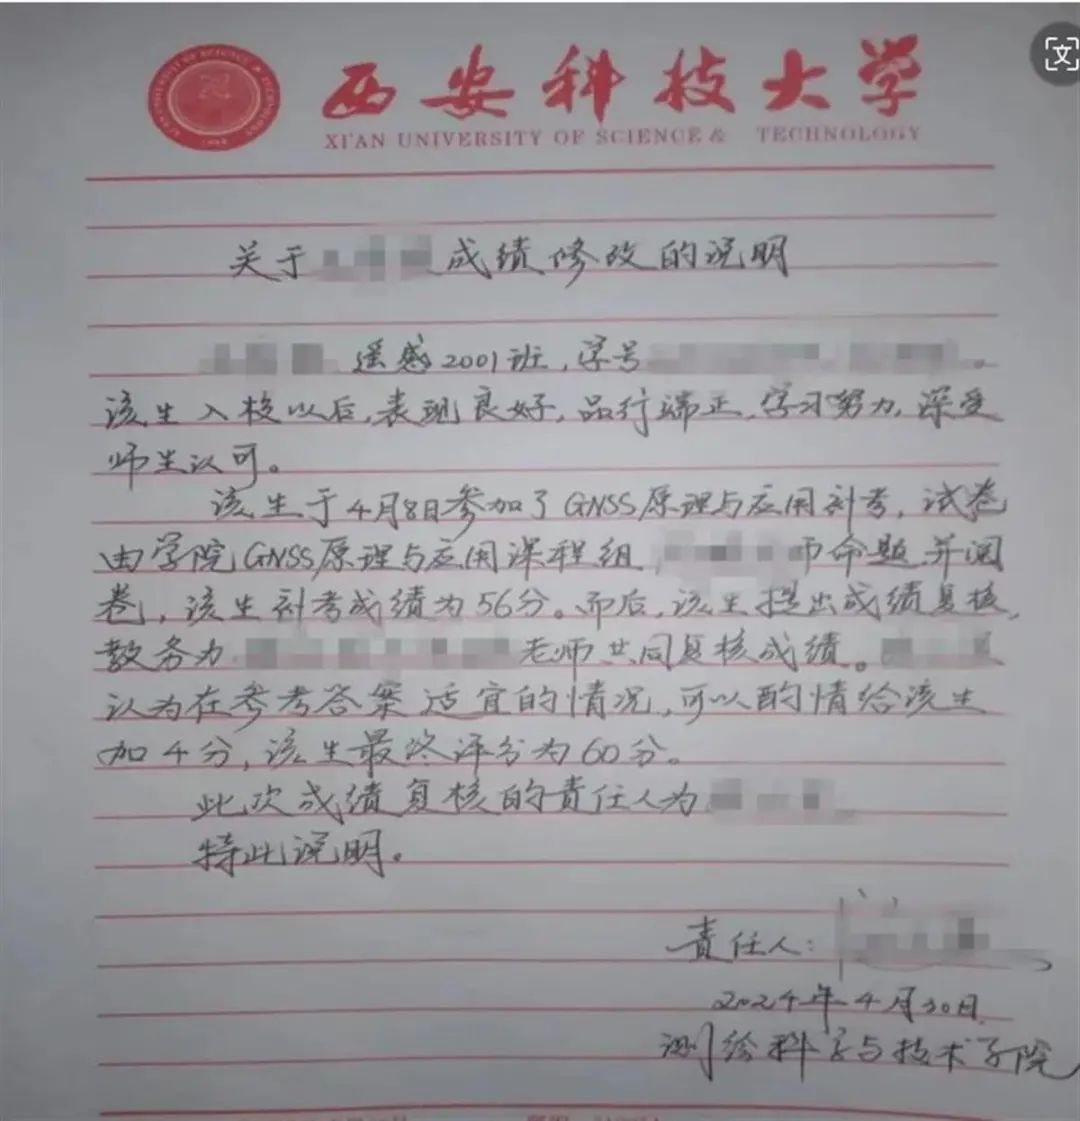 西安科技大学
XI'AN UNIVERSITY OF SCIENCE & TECHNOLOGY
关于 成绩修改的说明
遥感2001班，学号 。
该生入校以后，表现良好，品行端正，学习努力，深受
师生认可。
该生于4月8日参加了GNSS原理与应用补考，试卷
由学院GNSS原理与应用课程组 师命题并阅
卷，该生补考成绩为56分。而后，该生提出成绩复核，
教务办 老师共同复核成绩。
认为在参考答案适宜的情况，可以酌情给该生
加4分，该生最终评分为60分。
此次成绩复核的责任人为 。
特此说明。
责任人：
2024年4月30日
测绘科学与技术学院